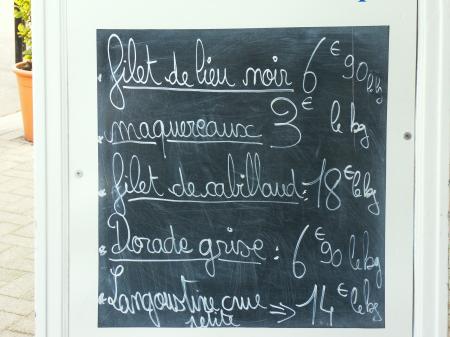 filet de lieu noir 6€90 le kg
maquereaux 3€ le kg
filet de cabillaud : 18€ le kg
Dorade grise : 6€90 le kg
Langoustine crue petite => 14€ le kg